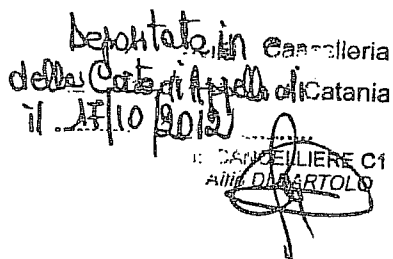 Depositato in Cancelleria
della Corte di Appello di Catania
il 17/10/2012
IL CANCELLIERE C1
DI BARTOLO